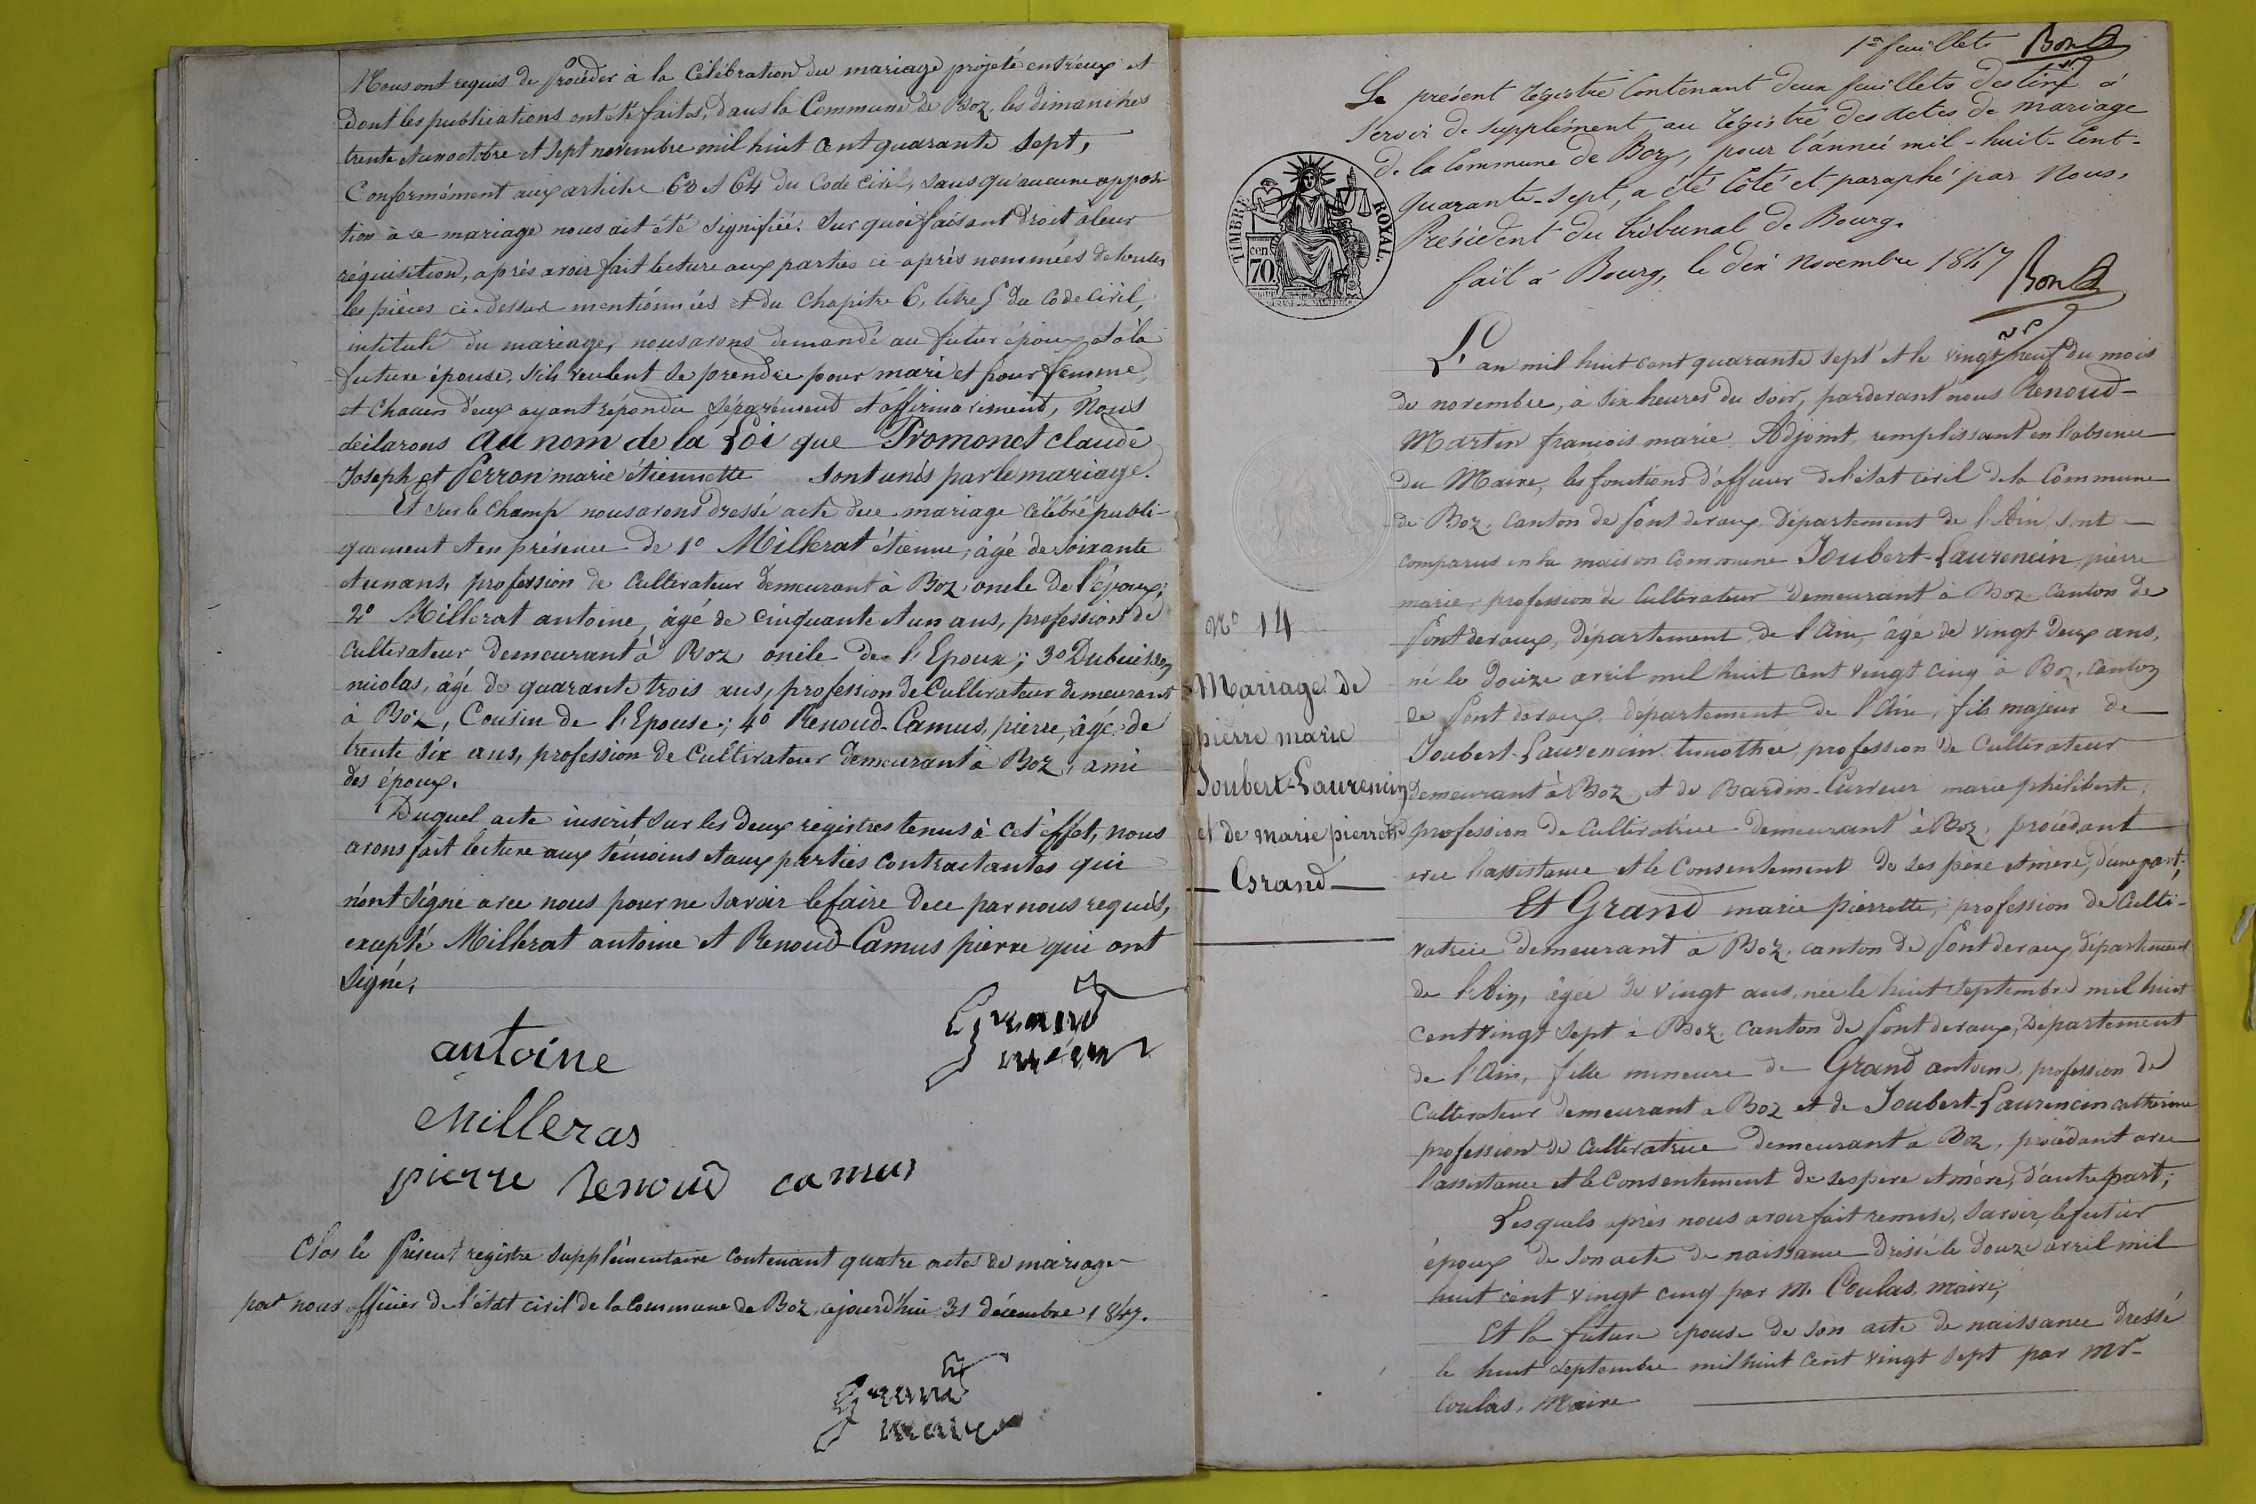 Nous ont requis de procéder à la Célébration du mariage projeté entr'eux et
dont les publications ont été faites, dans la Commune de Boz, les dimanches
trente et un octobre et sept novembre mil huit cent quarante sept,
Conformément aux articles 63 et 64 du Code civil, sans qu'aucune opposi-
tion à ce mariage nous ait été signifiée. Sur quoi faisant droit à leur
réquisition, après avoir fait lecture aux parties ci-après nommées de toutes
les pièces ci-dessus mentionnées et du chapitre 6, titre 5 du Code Civil,
intitulé du mariage, nous avons demandé au futur époux et à la
future épouse, s'ils veulent se prendre pour mari et pour femme,
et chacun d'eux ayant répondu séparément et affirmativement, Nous
déclarons au nom de la Loi que Promonet claude
Joseph et Perron marie étiennette sont unis par le mariage.
Et sur le champ nous avons dressé acte du mariage célébré publi-
quement et en présence de 1º Millerat étienne, âgé de soixante
et un ans, profession de Cultivateur demeurant à Boz, oncle de l'époux;
2º Millerat antoine, âgé de cinquante et un ans, profession de
Cultivateur demeurant à Boz oncle de l'Epoux; 3º Dubuisson
nicolas, âgé de quarante trois ans, profession de Cultivateur demeurant
à Boz, Cousin de l'Epouse; 4º Renoud-Camus, pierre, âgé de
trente six ans, profession de Cultivateur demeurant à Boz, ami
des époux.
Duquel acte inscrit sur les deux registres tenus à cet effet, nous
avons fait lecture aux témoins et aux parties contractantes qui
n'ont signé avec nous pour ne savoir le faire de ce par nous requis,
excepté Millerat antoine et Renoud-Camus pierre qui ont
signé.
Grand
antoine
Milleras
pierre Renoud camus
Clos le présent registre supplémentaire contenant quatre actes de mariage
par nous officier de l'état civil de la Commune de Boz, ajourd'hui 31 décembre 1847.
Grand
maire
1er feuillet
Le présent registre Contenant deux feuillets destiné à
servir de supplément au registre des actes de mariage
de la Commune de Boz, pour l'année mil-huit-Cent-
quarante-sept, a été côté et paraphé par Nous,
Président du tribunal de Bourg.
fait à Bourg, le dix Novembre 1847
TIMBRE ROYAL.
cen
70.
L'an mil huit cent quarante sept et le vingt neuf du mois
de novembre, à six heures du soir, pardevant nous Renoud-
Martin françois marie Adjoint, remplissant en l'absence
du Maire, les fonctions d'officier de l'état civil de la Commune
de Boz, canton de Pont devaux, Département de l'Ain, sont
comparus en la maison Commune Joubert-Laurencin pierre
marie, profession de Cultivateur demeurant à Boz, Canton de
Pont devaux, département de l'Ain, âgé de vingt deux ans,
né le douze avril mil huit cent vingt cinq à Boz, canton
de Pont devaux, département de l'Ain, fils majeur de
Joubert-Laurencin timothée, profession de Cultivateur
demeurant à Boz et de Bardin-Curveur marie philiberte,
profession de Cultivatrice demeurant à Boz, procédant
avec l'assistance et le Consentement de ses père et mère, d'une part;
Et Grand marie pierrette, profession de Culti-
vatrice demeurant à Boz, canton de Pont devaux, département
de l'Ain, âgée de vingt ans, née le huit septembre mil huit
cent vingt sept à Boz, Canton de Pont devaux, Département
de l'Ain, fille mineure de Grand antoine, profession de
Cultivateur demeurant à Boz et de Joubert-Laurencin catherine
profession de Cultivatrice demeurant à Boz, procédant avec
l'assistance et le Consentement de ses père et mère, d'autre part;
Lesquels après nous avoir fait remise, savoir, le futur
époux de son acte de naissance dressé le douze avril mil
huit cent vingt cinq par M. Coulas, maire,
Et la future épouse de son acte de naissance dressé
le huit septembre mil huit cent vingt sept par Mr
Coulas, Maire
Nº 14
Mariage de
pierre marie
Joubert-Laurencin
et de marie pierrette
Grand